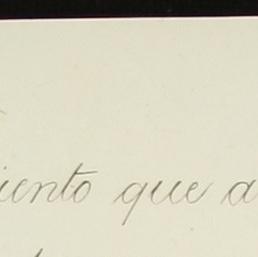 iento que a